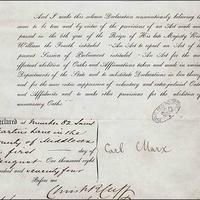 And I make this solemn Declaration conscientiously believing the
same to be true and by virtue of the provisions of an Act made and
passed in the 6th year of the Reign of His late Majesty
William the Fourth intituled "An Act to repeal an Act of the
present Session of Parliament intituled An Act for the more
effectual abolition of Oaths and Affirmations taken and made in various
Departments of the State and to substitute Declarations in lieu thereof
and for the more entire suppression of voluntary and extrajudicial Oaths
and Affidavits and to make other provisions for the abolition of
unnecessary Oaths."
Declared at Number 82 Saint
Martins Lane in the
County of Middlesex
first day of
August One thousand eight
hundred and seventy four
Before me
Carl Marx